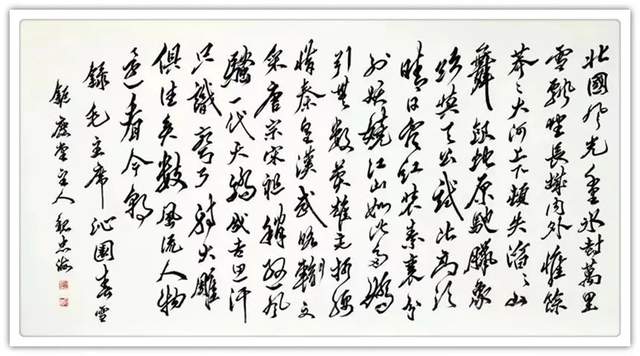 北國风光千里冰封萬里
雪飘望長城内外惟餘
莽々大河上下頓失滔々山
舞銀蛇原馳臘象
欲與天公試比高須
晴日看紅裝素裹分
外妖嬈江山如此多嬌
引無數英雄競折腰
惜秦皇漢武略輸文
采唐宗宋祖稍遜風
騷一代天驕成吉思汗
只識彎弓射大雕
俱往矣數風流人物
還看今朝
錄毛主席沁園春雪
堂主人魏忠海